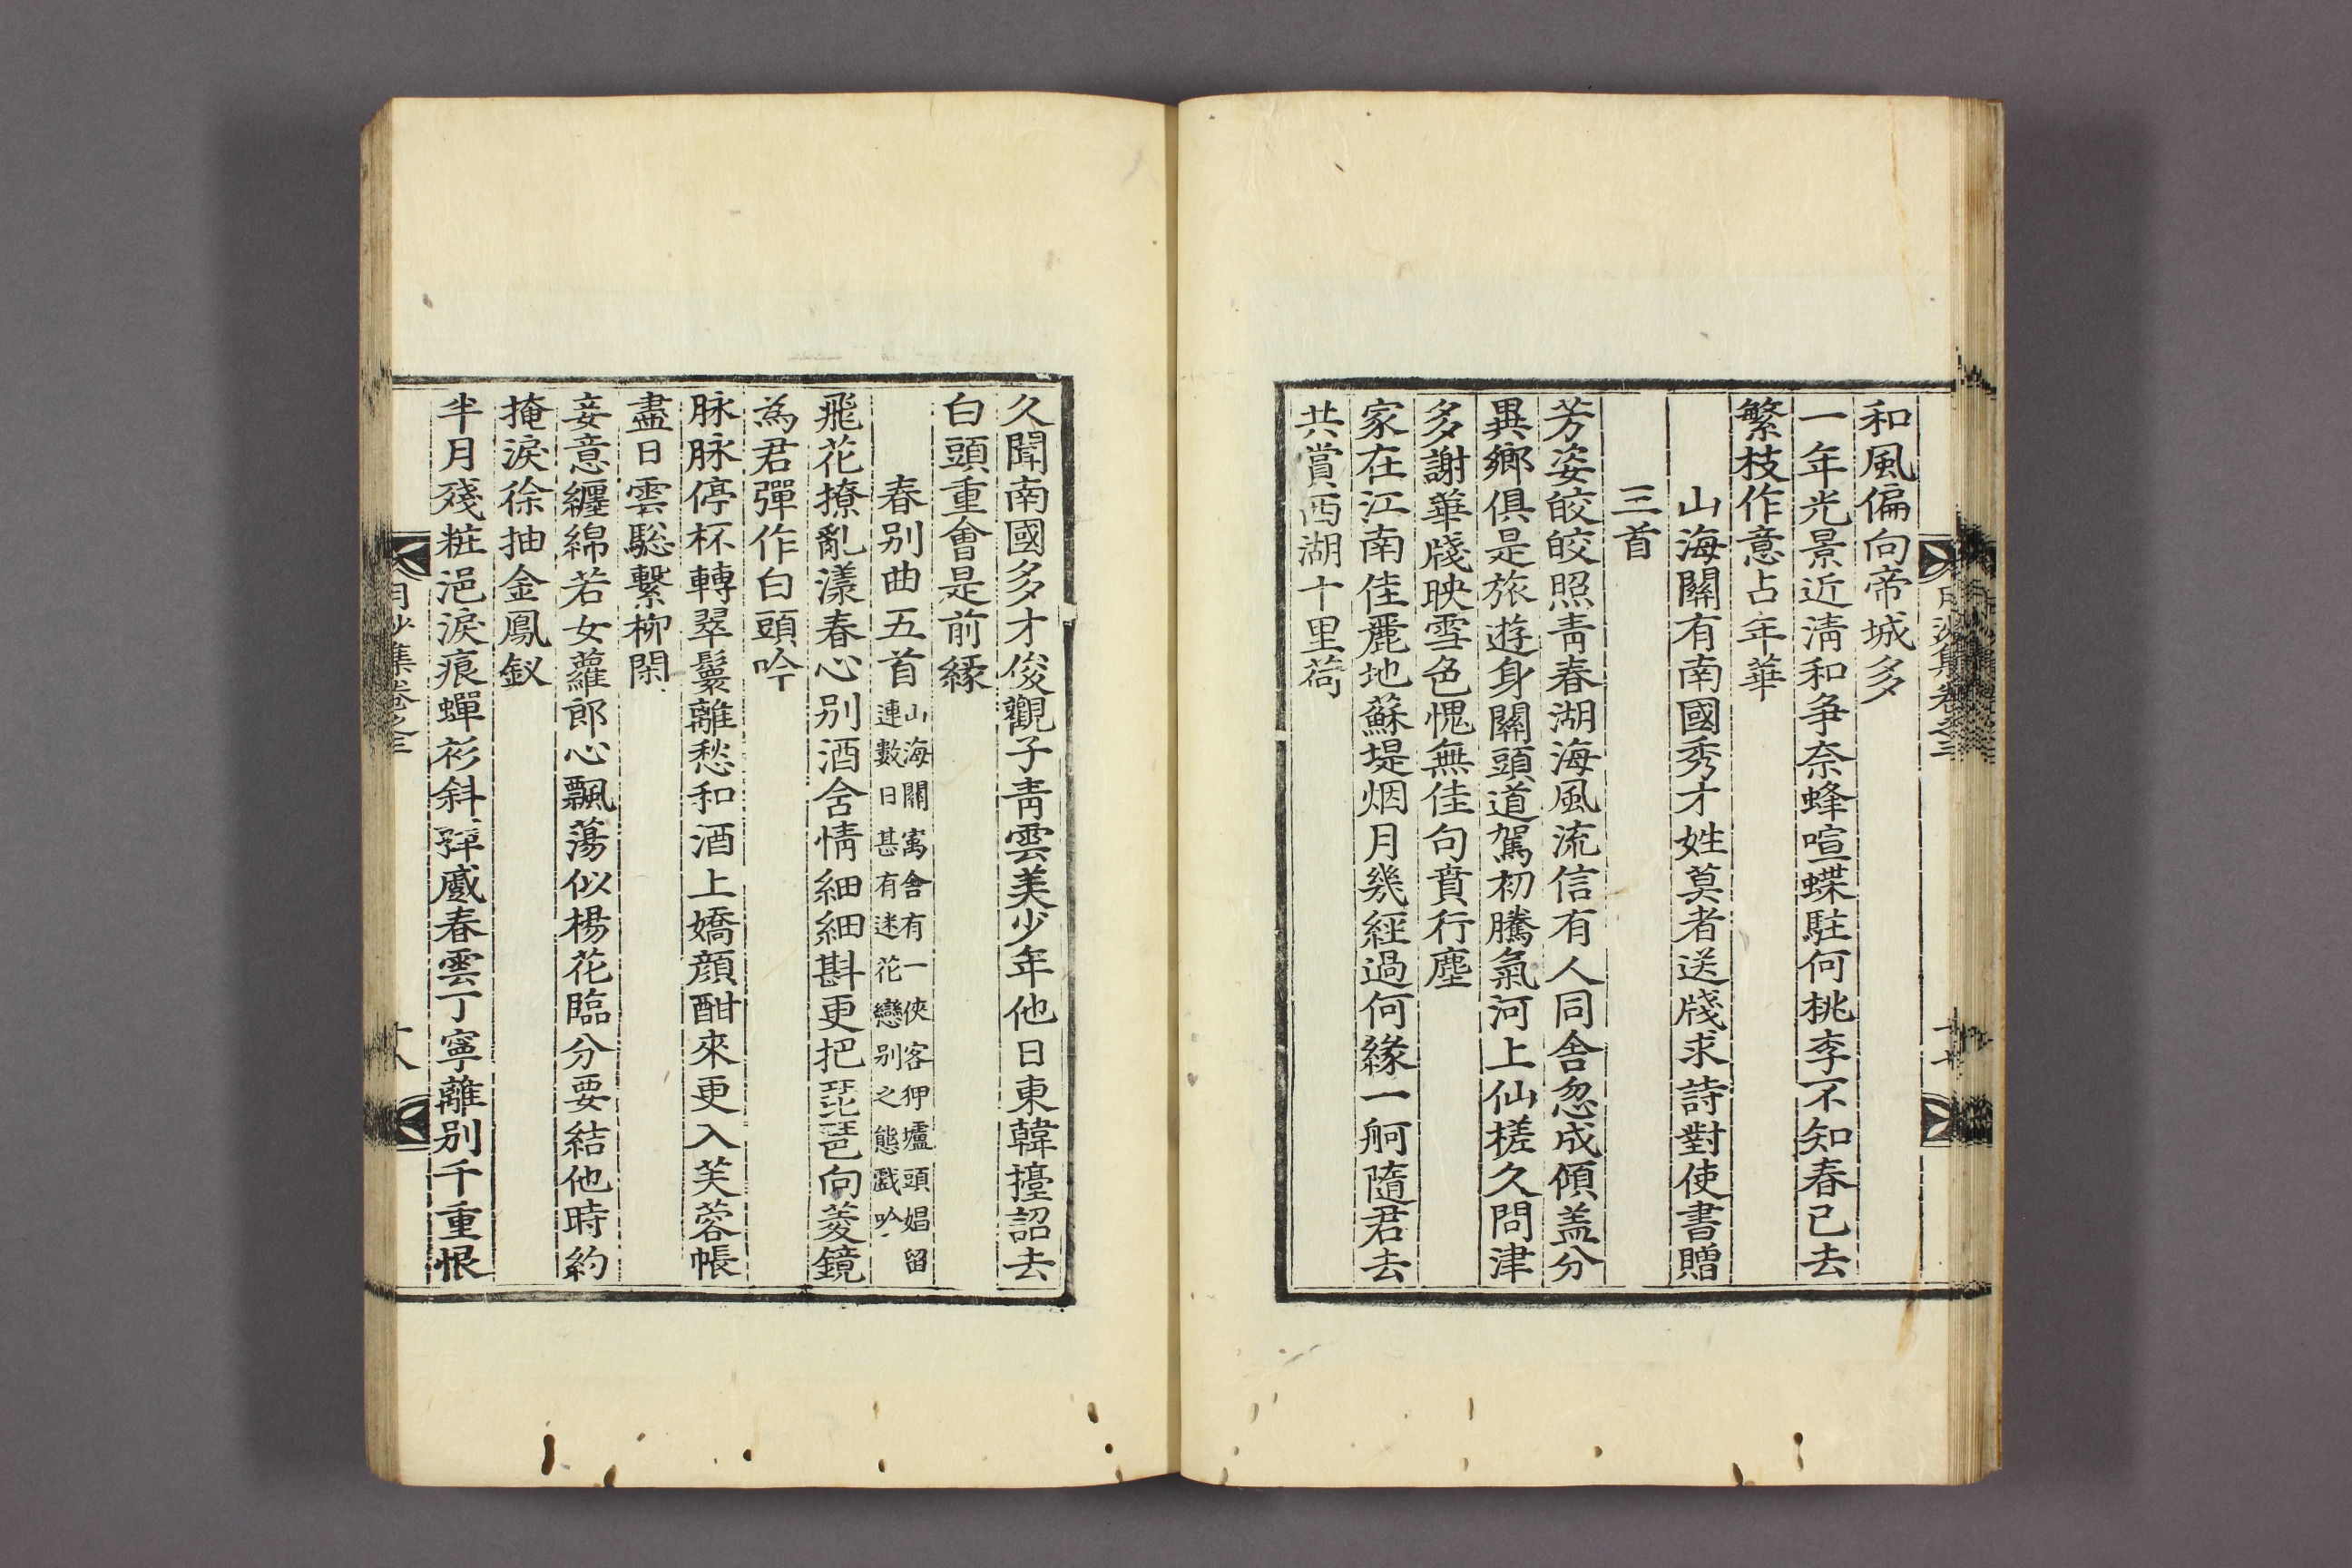 和風偏向帝城多
一年光景近淸和爭奈蜂喧蝶駐何桃李不知春已去
繁枝作意占年華
山海關有南國秀才姓莫者送牋求詩對使書贈
三首
芳姿皎皎照靑春湖海風流信有人同舍忽成傾盖分
異鄉俱是旅遊身關頭道駕初騰氣河上仙槎久問津
多謝華牋映雪色愧無佳句賁行塵
家在江南佳麗地蘇堤烟月幾經過何緣一舸隨君去
共賞西湖十里荷
久聞南國多才俊觀子靑雲美少年他日東韓擡詔去
白頭重會是前緣
春別曲五首
山海關寓舍有一俠客狎壚頭娼留
連數日甚有迷花戀別之態戲吟
飛花撩亂漾春心別酒含情細細斟更把琵琶向菱鏡
為君彈作白頭吟
脉脉停杯轉翠鬟離愁和酒上嬌顔酣來更入芙蓉帳
盡日雲驄繫柳閑
妾意纏綿若女蘿郎心飄蕩似楊花臨分要結他時約
掩淚徐抽金鳳釵
半月殘粧浥淚痕蟬衫斜嚲慼春雲丁寧離別千重恨
月沙集卷之三
十八